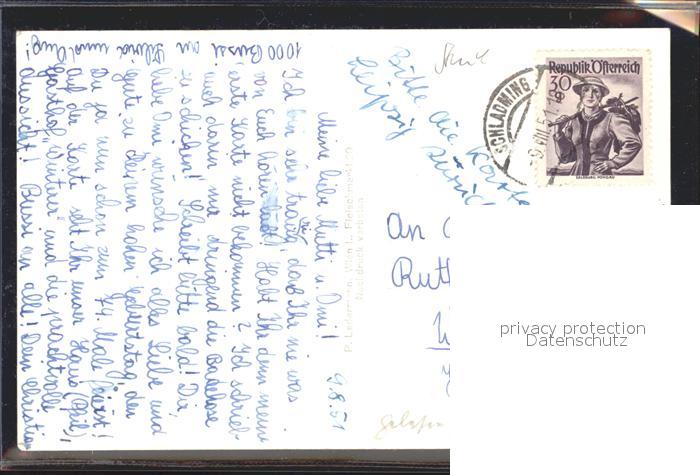 9.8.51
Meine liebe Mutti u. Omi!
Ich bin sehr traurig, daß Ihr nie was
von Euch hören laßt! Habt Ihr denn meine
erste Karte nicht bekommen? Ich schrieb
euch darin, mir dringend die Badehose
zu schicken! Schreibt bitte bald! Dir,
liebe Omi wünsche ich alles Liebe und
Gute zu Deinem hohen Geburtstag, den
Du ja nun schon zum 74. Male feierst!
Auf der Karte seht Ihr unser Haus (Pfeil),
Gasthof "Winterer" und die prachtvolle
Aussicht! Bussi an alle! Dein Christian
1000 Bussi an
P. Ledermann, Wien I., Fleischmarkt 20
Nachdruck verboten
Bitte die Karte
Leipzig zurück
SCHLADMING
9.VIII.51
Republik Österreich
30 g
SALZBURG, PONGAU
An
Ruth
privacy protection
Datenschutz